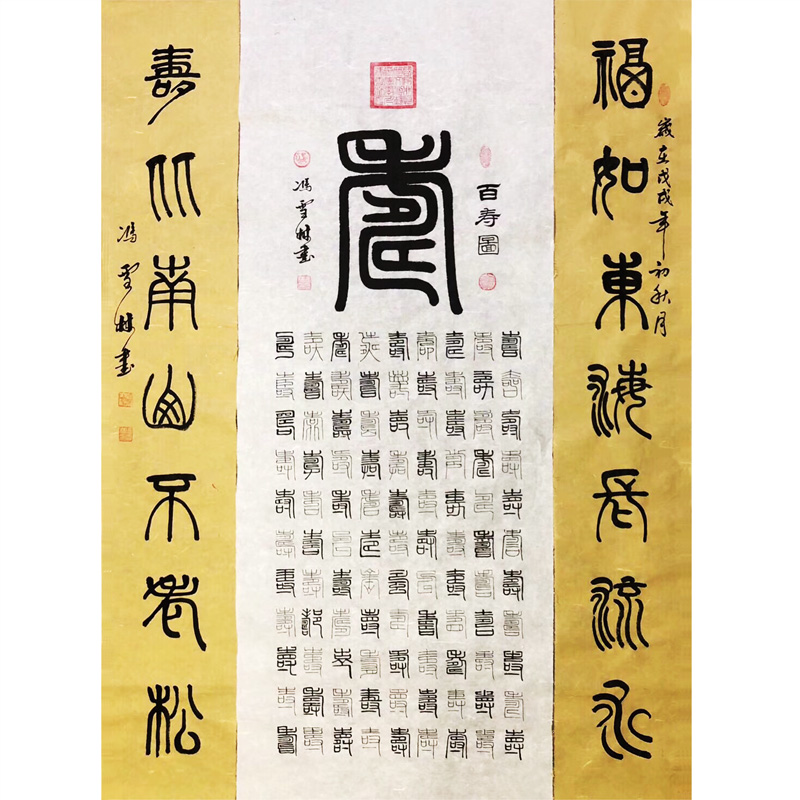 福如東海長流水
歲在戊戌年初秋月
百寿圖
壽
壽壽壽壽壽壽壽壽壽壽壽
壽壽壽壽壽壽壽壽壽壽壽
壽壽壽壽壽壽壽壽壽壽壽
壽壽壽壽壽壽壽壽壽壽壽
壽壽壽壽壽壽壽壽壽壽壽
壽壽壽壽壽壽壽壽壽壽壽
壽壽壽壽壽壽壽壽壽壽壽
壽壽壽壽壽壽壽壽壽壽壽
壽壽壽壽壽壽壽壽壽壽壽
馮雪林書
壽比南山不老松
馮雪林書